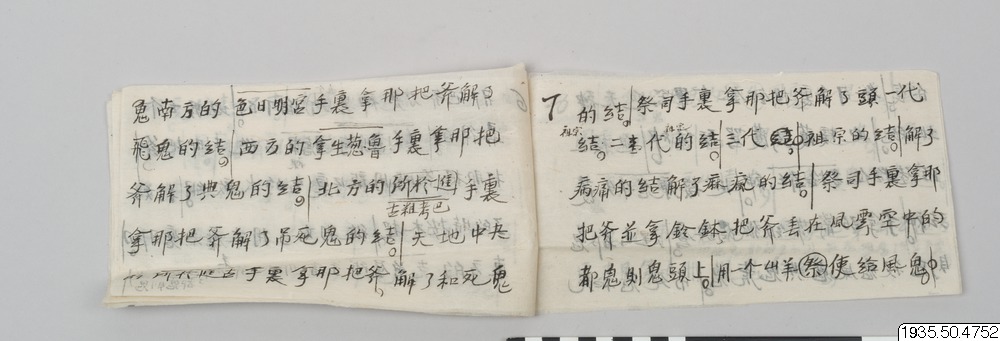 鬼南方的色日明宮手裏拿那把斧解了
飛鬼的結。西方的拿生葱魯手裏拿那把
斧解了與鬼的結。北方的所於闊手裏
古祖考巴
拿那把斧解了吊死鬼的結。天地中央
手裏拿那把斧解了和死鬼
7 的結。祭司手裏拿那把斧解了頭一代
祖宗
結。二代的結。三代結。祖宗的結解了
病痛的結解了麻瘋的結。祭司手裏拿那
把斧並拿鈴鉢。把斧丢在風雲空中的
都鬼則鬼頭上。用一个山羊祭使給風鬼。
1935.50.4752